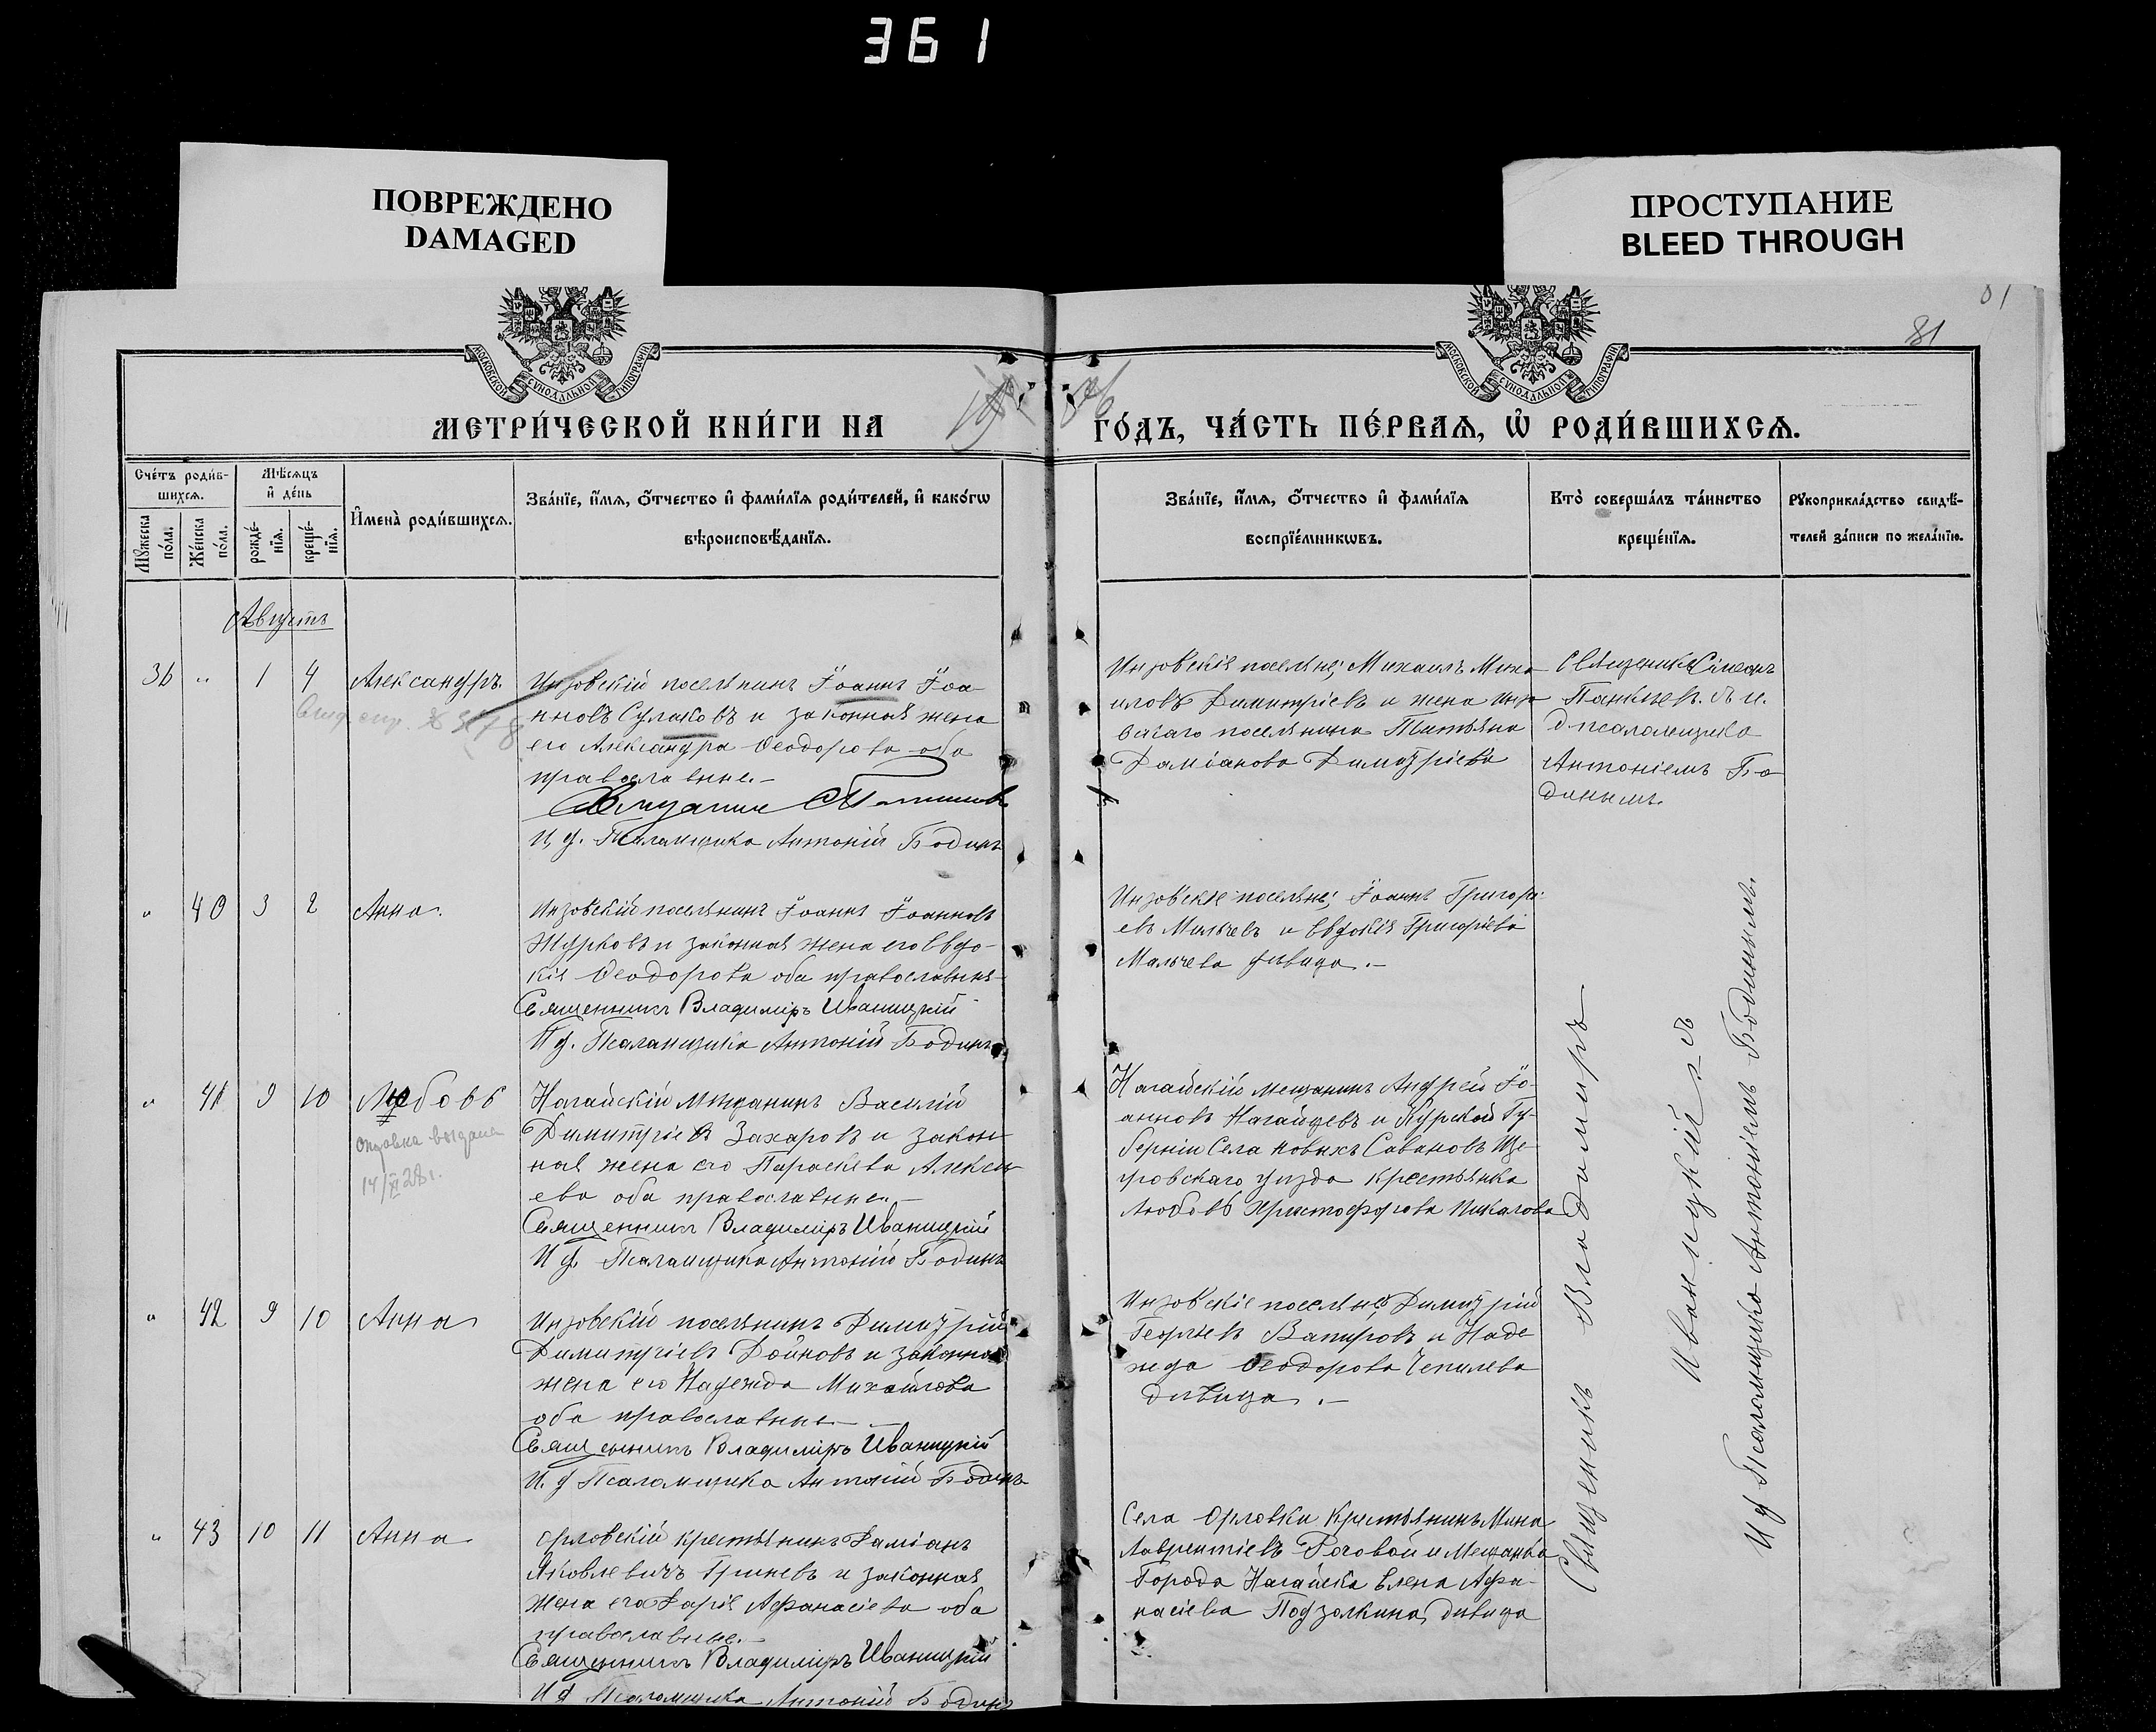 361
ПОВРЕЖДЕНО
DAMAGED
ПРОСТУПАНИЕ
BLEED THROUGH
81
МОСКОВСКОЙ СУНОДАЛЬНОЙ ТИПОГРАФІИ
МОСКОВСКОЙ СУНОДАЛЬНОЙ ТИПОГРАФІИ
МЕТРИ́ЧЕСКОЙ КНИ́ГИ НА
ГО́ДЪ, ЧА́СТЬ ПЕ́РВАѦ, Ѡ҆ РОДИ́ВШИХСѦ.
Сче́тъ роди́в-
шихсѧ.
Мѣ́сѧцъ
и҆ де́нь
Мꙋ́жеска
по́ла.
Же́нска
по́ла.
рожде́-
нїѧ.
креще́-
нїѧ.
И҆мена̀ роди́вшихсѧ.
Зва́нїе, и҆́мѧ, ѻ҆́тчество и҆ фами́лїѧ роди́телей, и҆ како́гѡ
вѣроисповѣ́данїѧ.
Зва́нїе, и҆́мѧ, ѻ҆́тчество и҆ фами́лїѧ
воспрїе́мникѡвъ.
Кто̀ соверша́лъ та́инство
креще́нїѧ.
Рꙋкоприкла́дство свидѣ́-
телей за́писи по жела́нїю.
Августъ
36 " 1 4 Александръ.
Инзовскій поселянинъ Іоаннъ Іоа-
нновъ Сулаковъ и законная жена
его Александра Ѳеодорова оба
православные.-
И. д. Псаломщика Антоній Бодинъ
Инзовскіе поселяне; Михаилъ Миха
иловъ Димитріевъ и жена Инзо
вскаго поселянина Татьяна
Даміанова Димитріева
Священникъ Симеонъ
съ и.
д. псаломщика
Антоніемъ Бо
динымъ.
" 40 3 2 Анна.
Инзовскій поселянинъ Іоаннъ Іоанновъ
Журковъ и законная жена его Евдо-
кія Ѳеодорова оба православные-
Священникъ Владиміръ Иваницкій
И д. Псаломщика Антоній Бодинъ
Инзовскіе поселяне; Іоаннъ Григорі
евъ Мальчевъ и Евдокія Григоріева
Мальчева дѣвица.-
" 41 9 10 Любовь
Выдана
14/XI 28 г.
Ногайскій мѣщанинъ Василій
Димитріевъ Захаровъ и закон-
ная жена его Параскева Алексѣ-
ева оба православные.-
Священникъ Владиміръ Иваницкій
И д. Псаломщика Антоній Бодинъ
Ногайскій мещанинъ Андрей Іо-
анновъ Нагайцевъ и Курской Гу-
берніи Села Новыхъ Савиновъ Ще-
гровскаго уѣзда крестьянка
Любовь Христофорова Шикалова
" 42 9 10 Анна
Инзовскій поселянинъ Димитрій
Димитріевъ Дойновъ и законная
жена его Надежда Михайлова
оба православные.-
Священникъ Владиміръ Иваницкій
И. д Псаломщика Антоній Бодинъ
Инзовскіе поселяне Димитрій
Георгіевъ Вапировъ и Наде
жда Ѳеодорова Чепилева
дѣвица.-
" 43 10 11 Анна
Орловскій крестьянинъ Даміанъ
Яковлевичъ Гриневъ и законная
жена его Дарія Аѳанасіева оба
православные.-
Священникъ Владиміръ Иваницкій
И д Псаломщика Антоній Бодинъ
Села Орловки Крестьянинъ Мина
Лаврентіевъ Роговой и Мещанка
Города Нагайска Елена Аѳа-
насіева Подзолкина, дѣвица
Священникъ Владиміръ
Иваницкій съ
И д Псаломщика Антоніемъ Бодинымъ.